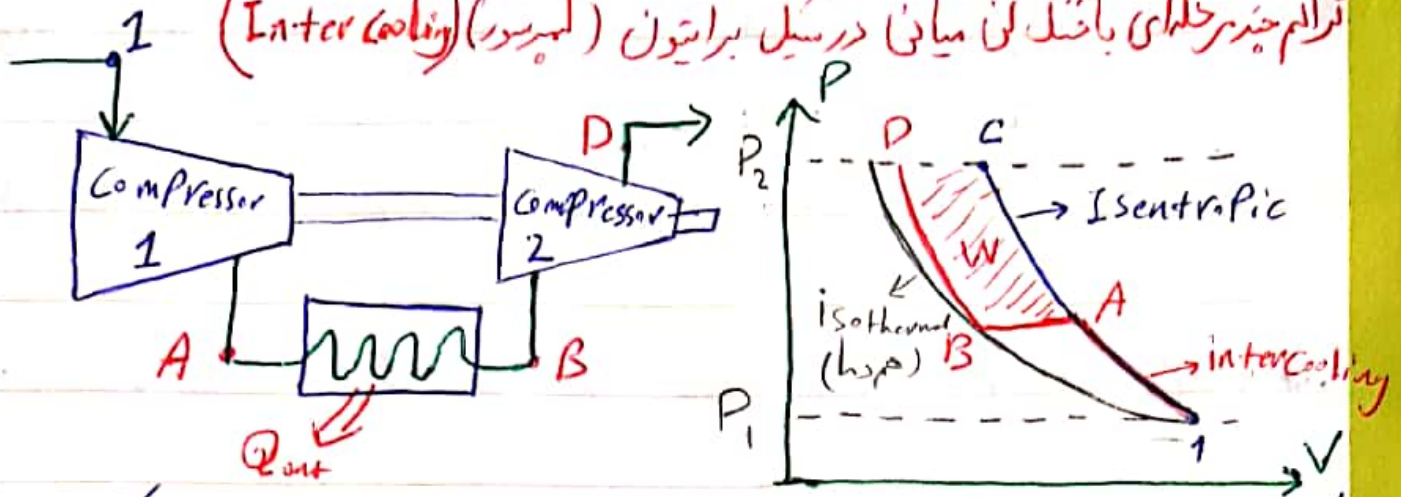 تراکم چند مرحله‌ای با خنک کن میانی در سیکل برایتون (کمپرسور) (Inter Cooling)
1
Compressor
1
A
Qout
B
Compressor
2
D
P
P2
D
C
Isentropic
W
A
isothermal
(همدما)
B
intercooling
P1
1
V